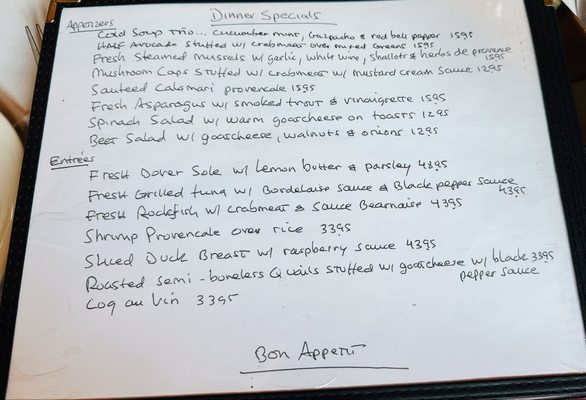 Dinner Specials
Appetizers
Cold Soup Trio... Cucumber mint, Gazpacho & red bell pepper 1595
Half Avocado stuffed w/ crabmeat over mixed Greens 1595
Fresh Steamed Mussels w/ garlic, white wine, shallots & herbs de provence
1595
Mushroom Caps Stuffed w/ crabmeat w/ mustard cream Sauce 1295
Sauteed Calamari provencale 1595
Fresh Asparagus w/ smoked trout & vinaigrette 1595
Spinach Salad w/ warm goatcheese on toasts 1295
Beet Salad w/ goatcheese, walnuts & onions 1295
Entrées
Fresh Dover Sole w/ Lemon butter & parsley 4395
Fresh Grilled tuna w/ Bordelaise sauce & Black pepper sauce
4395
Fresh Rockfish w/ crabmeat & Sauce Bearnaise 4395
Shrimp Provencale over rice 3395
Sliced Duck Breast w/ raspberry sauce 4395
Roasted semi-boneless Quails stuffed w/ goatcheese w/ black 3395
pepper sauce
Coq au Vin 3395
Bon Appetit